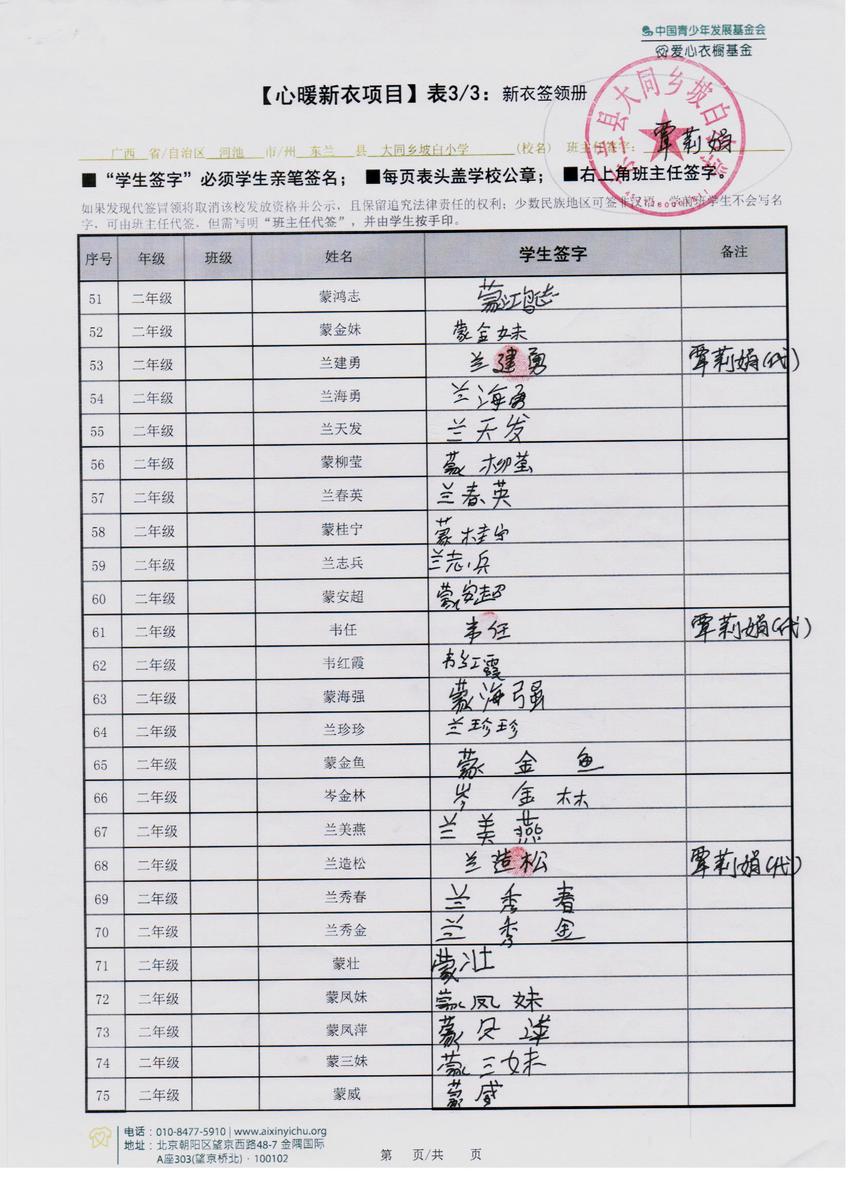 中国青少年发展基金会
爱心衣橱基金
【心暖新衣项目】表3/3：新衣签领册
广西 省/自治区 河池 市/州 东兰 县 大同乡坡白小学 (校名) 班主任签字： 覃莉娟
■“学生签字”必须学生亲笔签名； ■每页表头盖学校公章； ■右上角班主任签字。
如果发现代签冒领将取消该校发放资格并公示，且保留追究法律责任的权利；少数民族地区可签非汉语，学前班学生不会写名
字，可由班主任代签，但需写明“班主任代签”，并由学生按手印。
序号 年级 班级 姓名 学生签字 备注
51 二年级 蒙鸿志 蒙鸿志
52 二年级 蒙金妹 蒙金妹
53 二年级 兰建勇 兰建勇 覃莉娟(代)
54 二年级 兰海勇 兰海勇
55 二年级 兰天发 兰天发
56 二年级 蒙柳莹 蒙柳莹
57 二年级 兰春英 兰春英
58 二年级 蒙桂宁 蒙桂宁
59 二年级 兰志兵 兰志兵
60 二年级 蒙安超 蒙安超
61 二年级 韦任 韦任 覃莉娟(代)
62 二年级 韦红霞 韦红霞
63 二年级 蒙海强 蒙海强
64 二年级 兰珍珍 兰珍珍
65 二年级 蒙金鱼 蒙金鱼
66 二年级 岑金林 岑金林
67 二年级 兰美燕 兰美燕
68 二年级 兰造松 兰造松 覃莉娟(代)
69 二年级 兰秀春 兰秀春
70 二年级 兰秀金 兰秀金
71 二年级 蒙壮 蒙壮
72 二年级 蒙凤妹 蒙凤妹
73 二年级 蒙凤萍 蒙凤萍
74 二年级 蒙三妹 蒙三妹
75 二年级 蒙威 蒙威
电话：010-8477-5910 | www.aixinyichu.org
地址：北京朝阳区望京西路48-7 金隅国际
A座303(望京桥北) · 100102
第 页/共 页